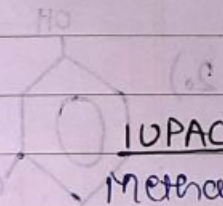 HO
IUPAC
Metha